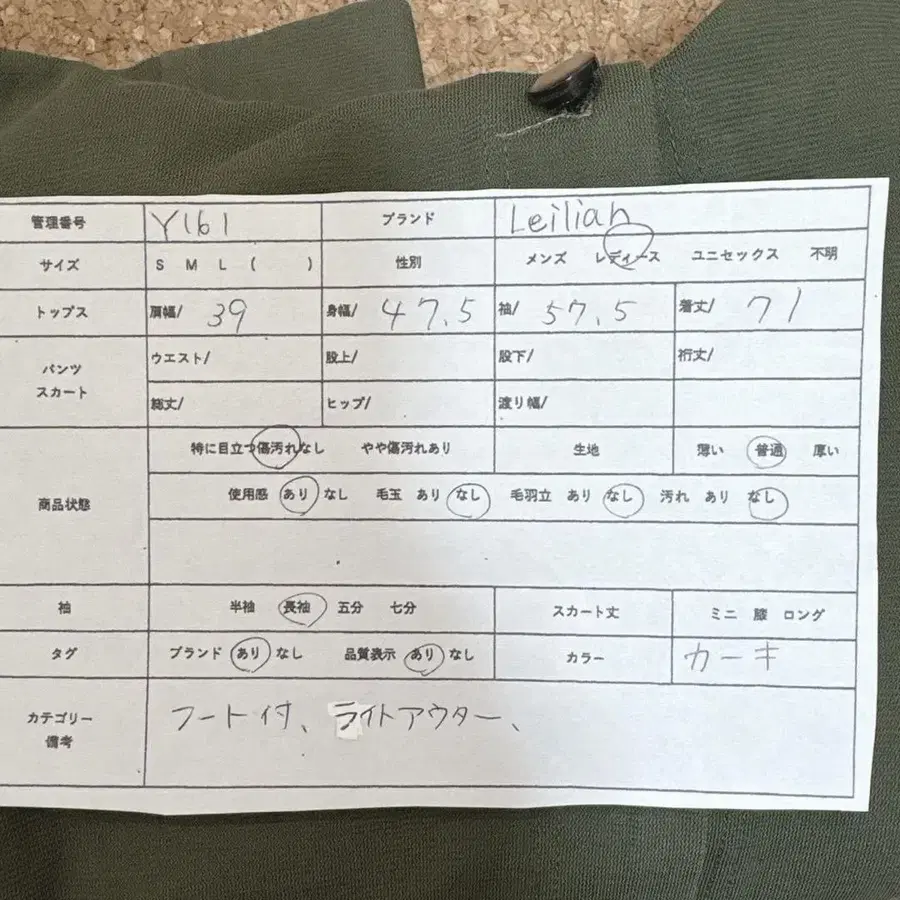 管理番号 Y161 ブランド Leilian
サイズ S M L ( ) 性別 メンズ レディース ユニセックス 不明
トップス 肩幅/ 39 身幅/ 47.5 袖/ 57.5 着丈/ 71
パンツ スカート ウエスト/ 股上/ 股下/ 裄丈/
総丈/ ヒップ/ 渡り幅/
特に目立つ傷汚れなし やや傷汚れあり 生地 薄い 普通 厚い
商品状態 使用感 あり なし 毛玉 あり なし 毛羽立 あり なし 汚れ あり なし
袖 半袖 長袖 五分 七分 スカート丈 ミニ 膝 ロング
タグ ブランド あり なし 品質表示 あり なし カラー カーキ
カテゴリー 備考 フート付、ライトアウター、